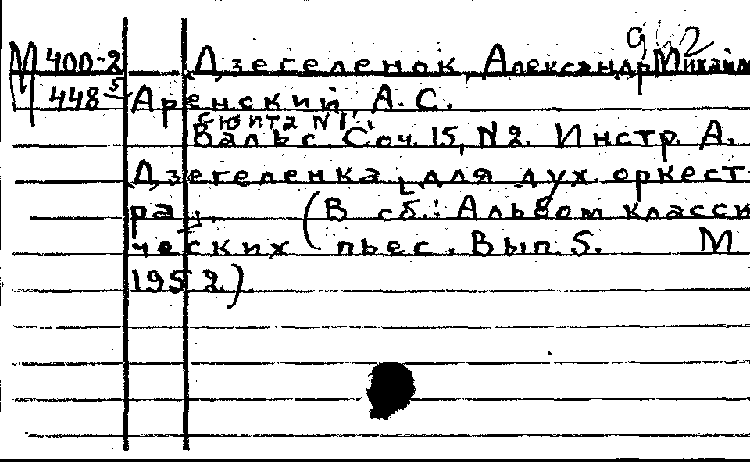 962
М 400-2 Дзегеленок, Александр Михайл
448⁵ Аренский А. С.
Сюита N 1.
Вальс. Соч. 15, N 2. Инстр. А.
Дзегеленка, для дух. оркест-
ра. (В сб.: Альбом класси
ческих пьес. Вып. 5. М
1952.).